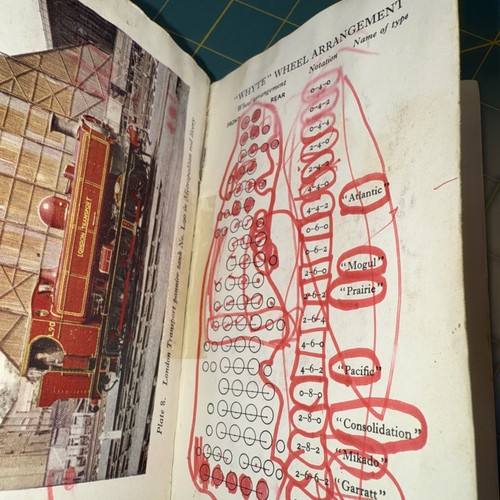 "WHYTE" WHEEL ARRANGEMENT
Wheel arrangement Notation Name of type
FRONT REAR
0-4-0
0-4-2
0-4-4
2-4-0
2-4-2
4-4-0
4-4-2 "Atlantic"
0-6-0
0-6-2
2-6-0 "Mogul"
2-6-2 "Prairie"
2-6-4
4-6-0
4-6-2 "Pacific"
0-8-0
2-8-0 "Consolidation"
2-8-2 "Mikado"
2-6-6-2 "Garratt"
LONDON TRANSPORT
L.90
Plate 8. London Transport pannier tank No. L.90